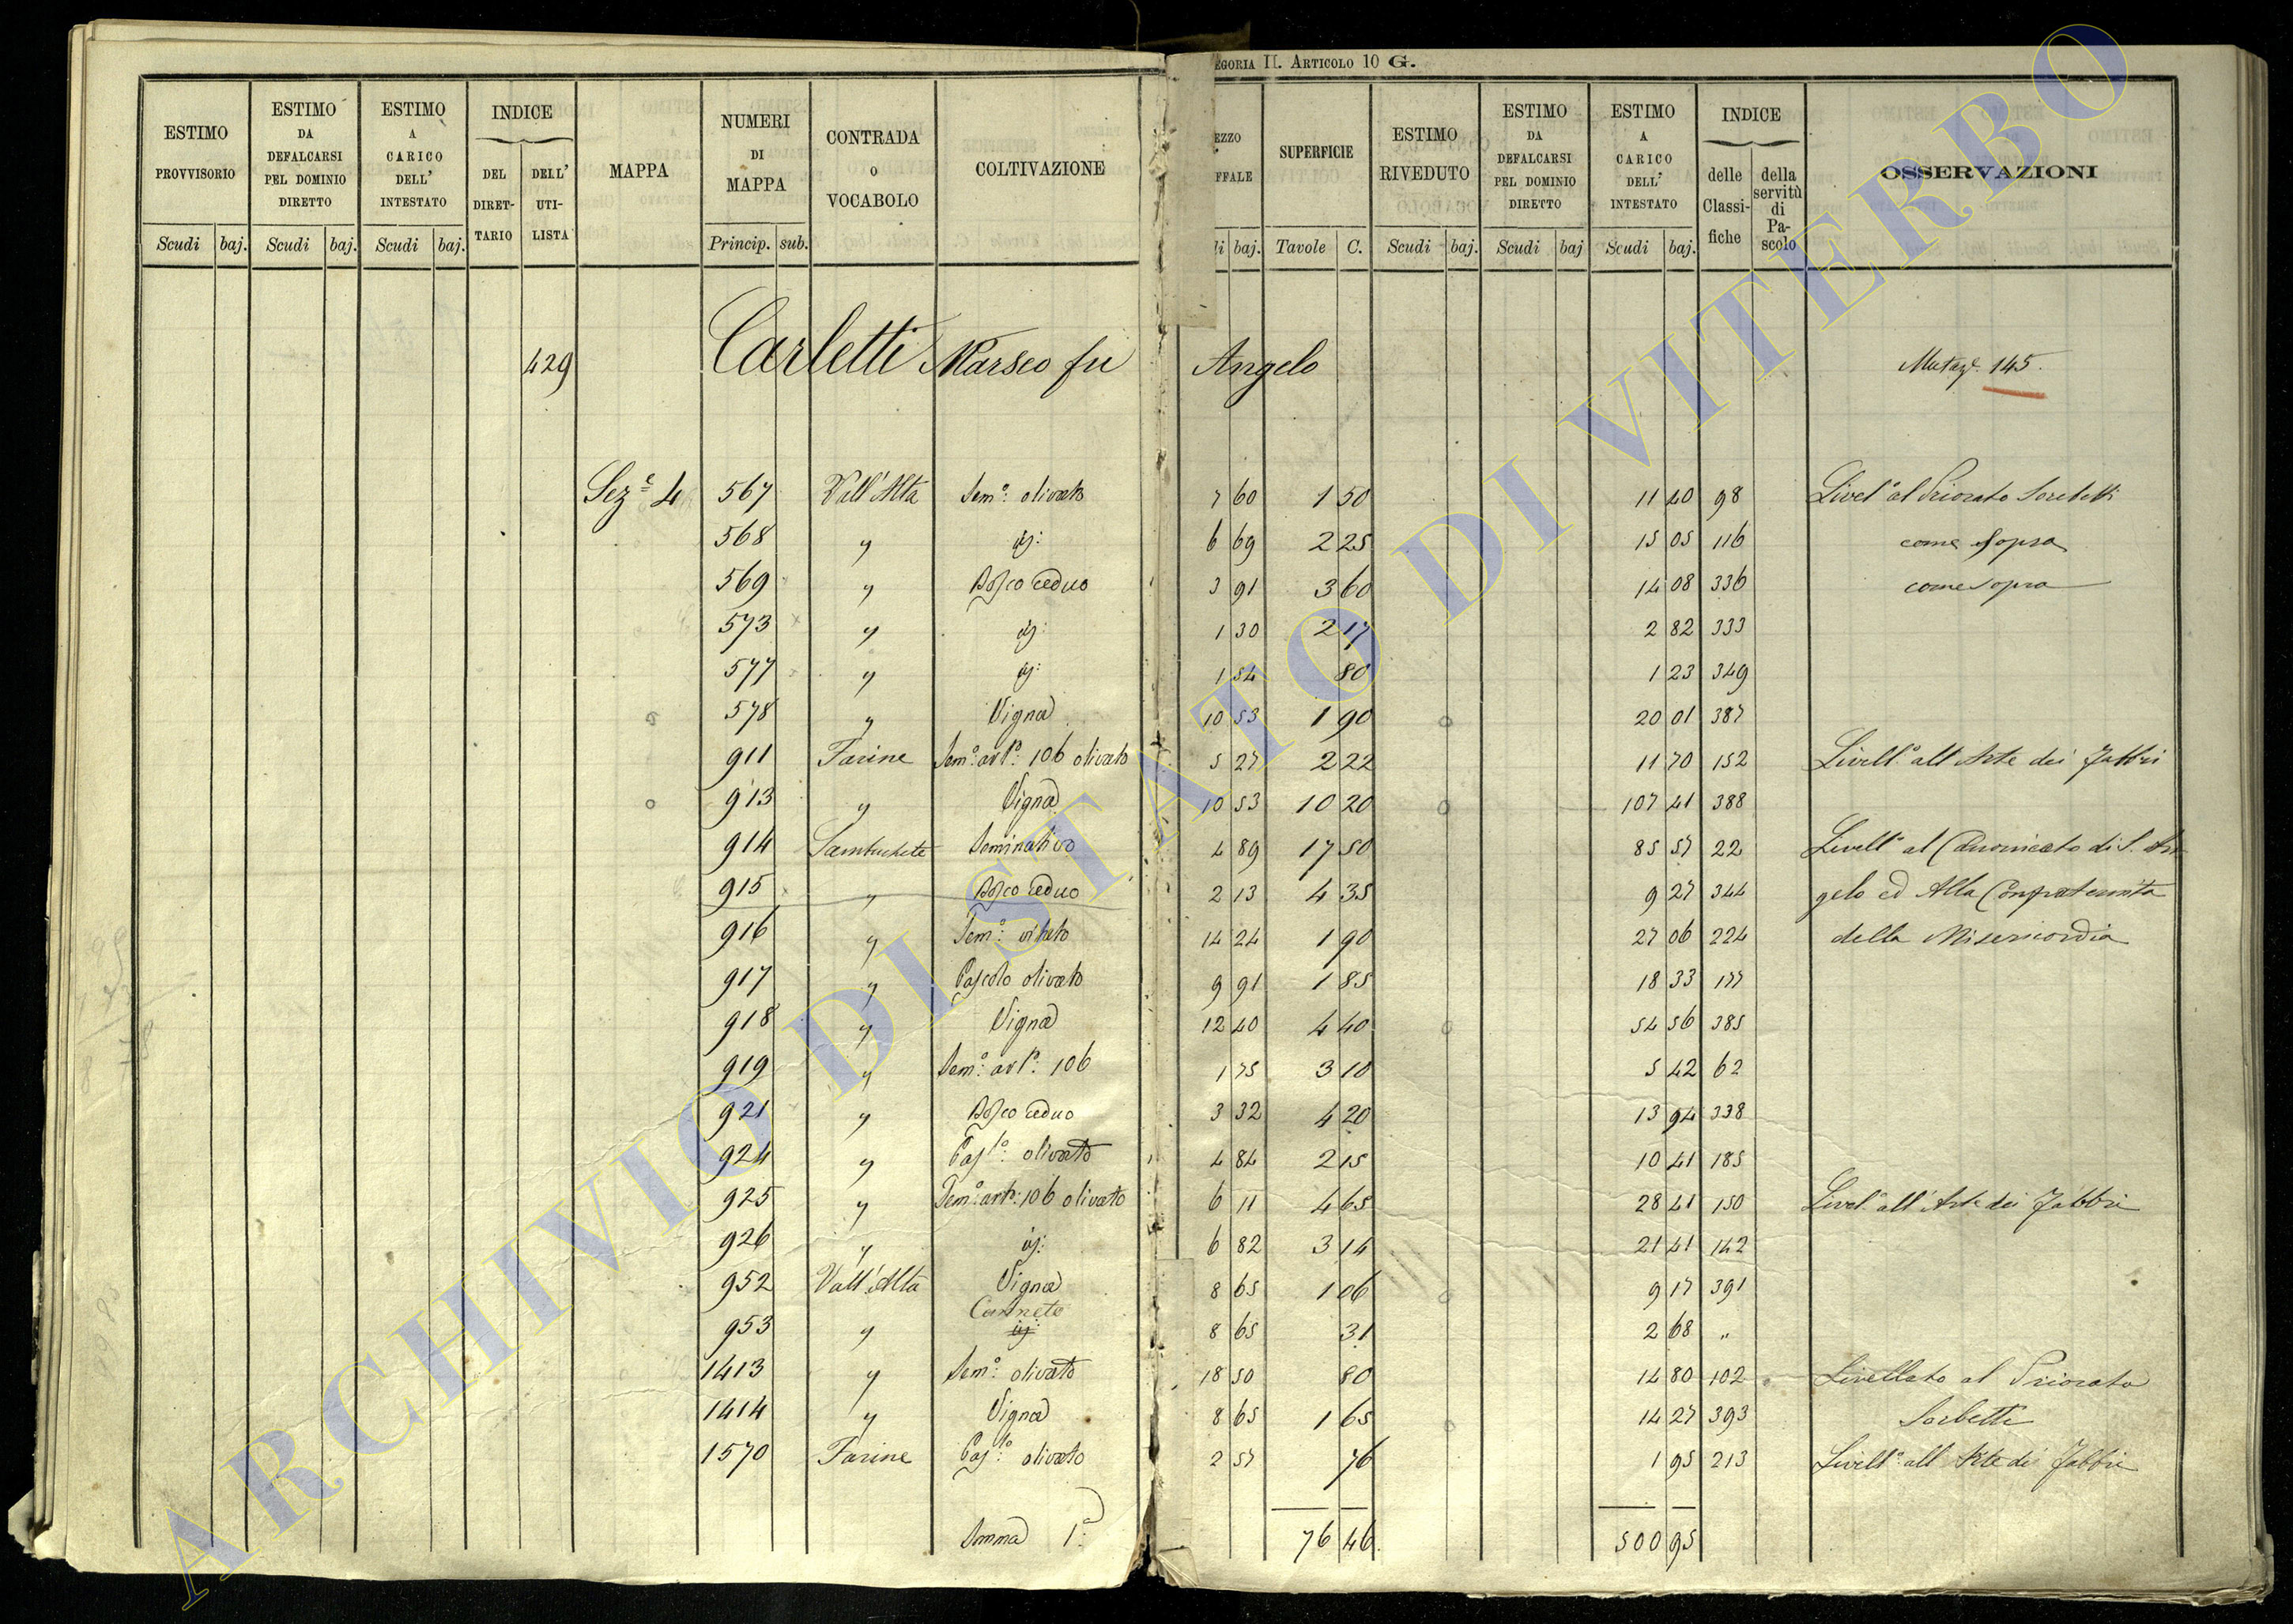 EGORIA II. ARTICOLO 10 G.
ESTIMO PROVVISORIO Scudi baj. ESTIMO DA DEFALCARSI PEL DOMINIO DIRETTO Scudi baj. ESTIMO A CARICO DELL' INTESTATO Scudi baj. INDICE DEL DIRET-TARIO DELL' UTI-LISTA MAPPA NUMERI DI MAPPA Princip. sub. CONTRADA O VOCABOLO COLTIVAZIONE EZZO FFALE di baj. SUPERFICIE Tavole C. ESTIMO RIVEDUTO Scudi baj. ESTIMO DA DEFALCARSI PEL DOMINIO DIRETTO Scudi baj ESTIMO A CARICO DELL' INTESTATO Scudi baj. INDICE delle Classi-fiche della servitù di Pa-scolo OSSERVAZIONI
429 Carletti Marseo fu Angelo Mutaz.e 145.
Sez.e 4 567 Vall'Alta Sem.o: olivato 7 60 1 50 11 40 98 Livel.o al Priorato Sorbetti
568 " id: 6 69 2 25 15 05 116 come sopra
569 " Bosco ceduo 3 91 3 60 14 08 336 come sopra
573 " id: 1 30 2 17 2 82 333
577 " id: 1 54 80 1 23 349
578 " Vigna 10 53 1 90 20 01 387
911 Farine Sem.o: art.o: 106 olivato 5 27 2 22 11 70 152 Livell.o all'Arte dei Fabbri
913 " Vigna 10 53 10 20 107 41 388
914 Sambuchete Seminativo 4 89 17 50 85 57 22 Livell.o al Canonicato di S. An
915 " Bosco ceduo 2 13 4 35 9 27 344 gelo ed Alla Confraternita
916 " Sem.o: vitato 14 24 1 90 27 06 224 della Misericordia
917 " Pascolo olivato 9 91 1 85 18 33 177
918 " Vigna 12 40 4 40 54 56 385
919 " Sem.o: art.o: 106 1 75 3 10 5 42 62
921 " Bosco ceduo 3 32 4 20 13 94 338
924 " Pas.lo: olivato 4 84 2 15 10 41 185
925 " Sem.o: art.o: 106 olivato 6 11 4 65 28 41 150 Livel.o all'Arte dei Fabbri
926 " id: 6 82 3 14 21 41 142
952 Vall'Alta Vigna 8 65 1 06 9 17 391
953 " Canneto id: 8 65 31 2 68 "
1413 " Sem.o: olivato 18 50 80 14 80 102 Livellato al Priorato
1414 " Vigna 8 65 1 65 14 27 393 Sorbetti
1570 Farine Pas.lo: olivato 2 57 76 1 95 213 Livell.o all'Arte dei Fabbri
Somma 1.a: 76 46. 500 95
ARCHIVIO DI STATO DI VITERBO